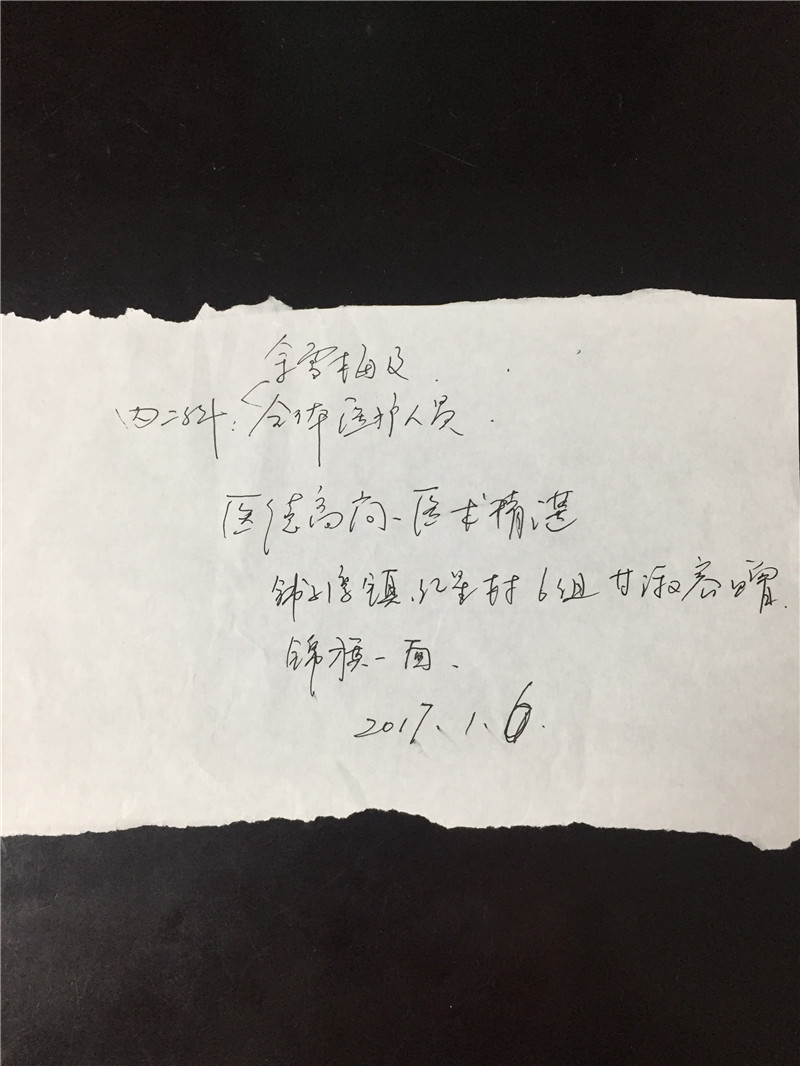 余雪梅及.
内二科:全体医护人员.
医德高尚、医术精湛
红星村6组 甘淑容赠.
锦旗一面、
2017.1.6.